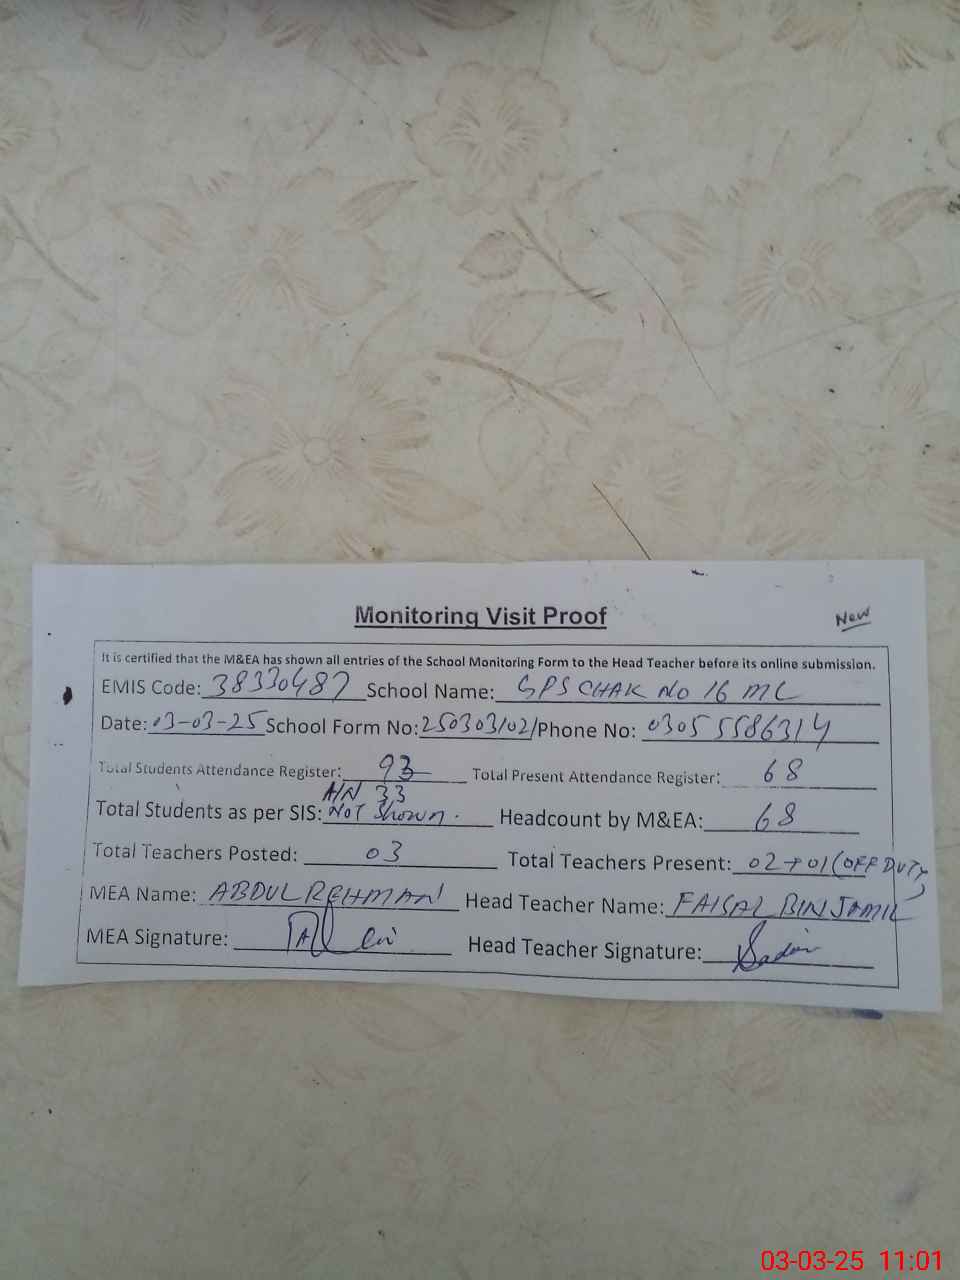 Monitoring Visit Proof
New
It is certified that the M&EA has shown all entries of the School Monitoring Form to the Head Teacher before its online submission.
EMIS Code: 38330487 School Name: GPS CHAK NO 16 MC
Date: 03-03-25 School Form No: 250303102/ Phone No: 03055586314
Total Students Attendance Register: 93 Total Present Attendance Register: 68
A/N 33
Total Students as per SIS: Not Shown. Headcount by M&EA: 68
Total Teachers Posted: 03 Total Teachers Present: 02+01 (OFF DUTY)
MEA Name: ABDUL REHMAN Head Teacher Name: FAISAL BIN JAMIL
MEA Signature: Head Teacher Signature:
03-03-25 11:01